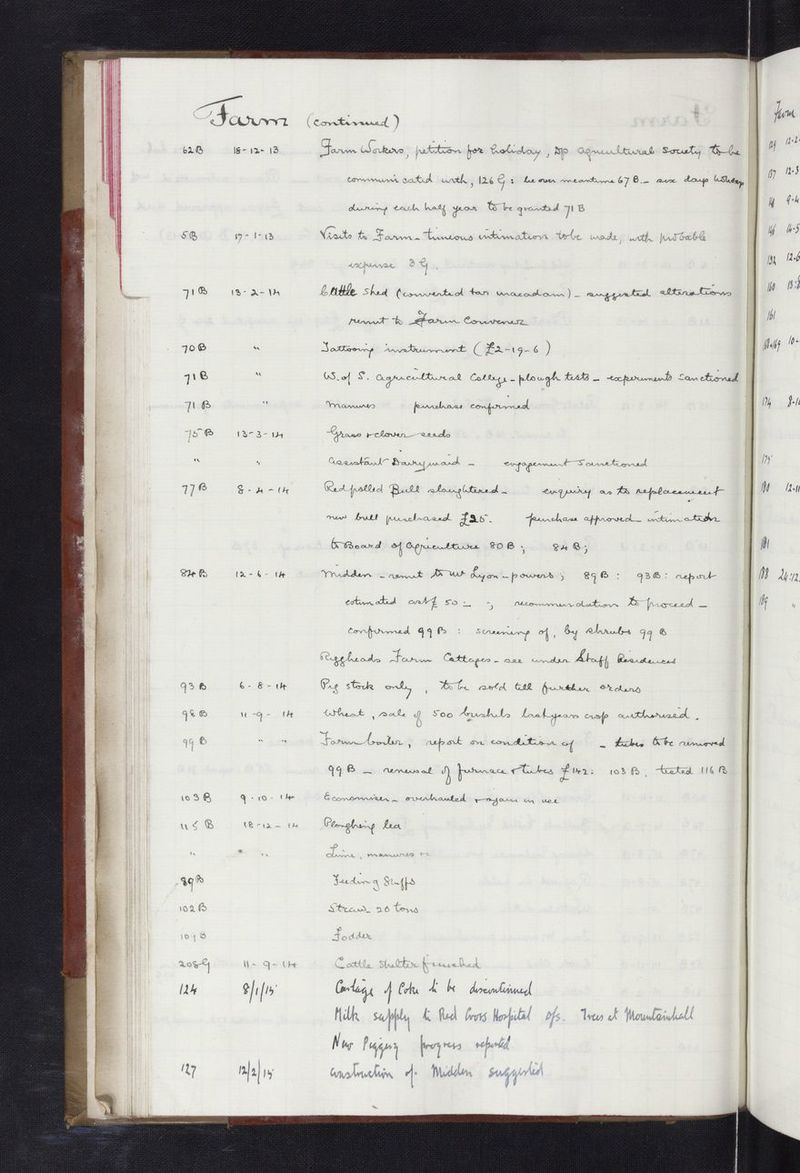 Farm (continued)
62B 18-12-13 Farm Workers, petition for holiday, Dp Agricultural Society to be
communicated with, 126 G: lie over meantime 67 B. - six days holiday
during each half year to be granted 71 B
5B 17-1-13 Visits to Farm - timeous intimation to be made, with probable
expense 3 G.
71 B 13-2-14 Cattle Shed (converted tar macadam) - suggested alterations
remit to Farm Convener
70 B " Tattooing instrument (£2-19-6)
71 B " W. of S. Agricultural College - plough tests - experiments sanctioned
71 B " Manures purchase confirmed
75 B 13-3-14 Grass & clover seeds
" " Assistant Dairymaid - engagement sanctioned
77 B 8-4-14 Red polled Bull slaughtered - enquiry as to replacement
new bull purchased £25. purchase approved intimation
to Board of Agriculture 80 B; 84 B;
84 B 12-6-14 Midden - remit to Mr Lyon - powers; 89 B: 93 B: report
estimated cost £50:- ; recommendation to proceed -
confirmed 99 B: screening of, by shrubs 99 B
Riggheads Farm Cottages - see under Staff Residences
93 B 6-8-14 Pig stock only, to be sold till further orders
98 B 11-9-14 Wheat, sale of 500 bushels last years crop authorised.
99 B " " Farm boiler, report on condition of - tubes to be removed
99 B - renewal of furnace & tubes £142: 103 B. tested 116 B
103 B 9-10-14 Economiser - overhauled & again in use
115 B 18-12-14 Ploughing lea
" " " Lime, manures
89 B Feeding Stuffs
102 B Straw 20 tons
B Fodder
208 G 11-9-14 Cattle Shelter finished
124 8/1/15 Cartage of Coke to be discontinued
Milk supply to Red Cross Hospital ofs. Trees at Mountainhall
New Piggery progress reported
127 12/2/15 Construction of Midden suggested
Farm